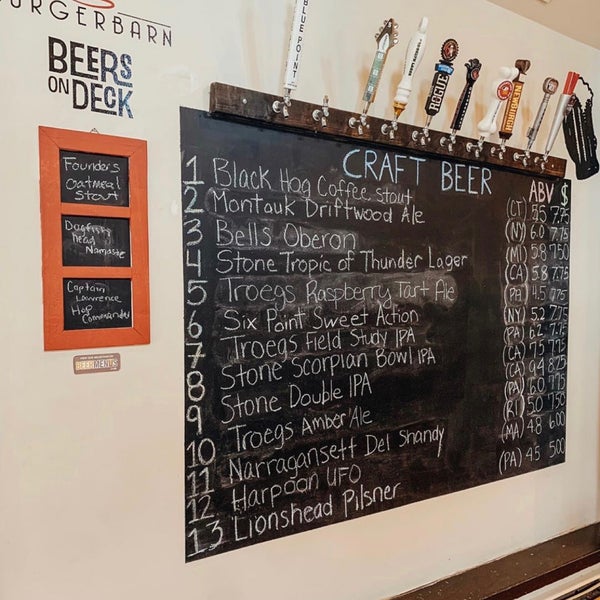 BURGERBARN
BEERS
ON
DECK
Founder's
Oatmeal
Stout
Dogfish
Head
Namaste
Captain
Lawrence
Hop
Commander
BEERMENUS
BLUE POINT
ROGUE
CRAFT BEER ABV $
1 Black Hog Coffee Stout (CT) 5.5 7.75
2 Montauk Driftwood Ale (NY) 6.0 7.75
3 Bells Oberon (MI) 5.8 7.50
4 Stone Tropic of Thunder Lager (CA) 5.8 7.75
5 Troegs Raspberry Tart Ale (PA) 4.5 7.75
6 Six Point Sweet Action (NY) 5.2 7.75
7 Troegs Field Study IPA (PA) 6.2 7.75
8 Stone Scorpian Bowl IPA (CA) 7.5 7.75
9 Stone Double IPA (CA) 9.4 8.75
10 Troegs Amber Ale (PA) 5.0 7.75
11 Narragansett Del Shandy (RI) 5.0 7.50
12 Harpoon UFO (MA) 4.8 6.00
13 Lionshead Pilsner (PA) 4.5 5.00